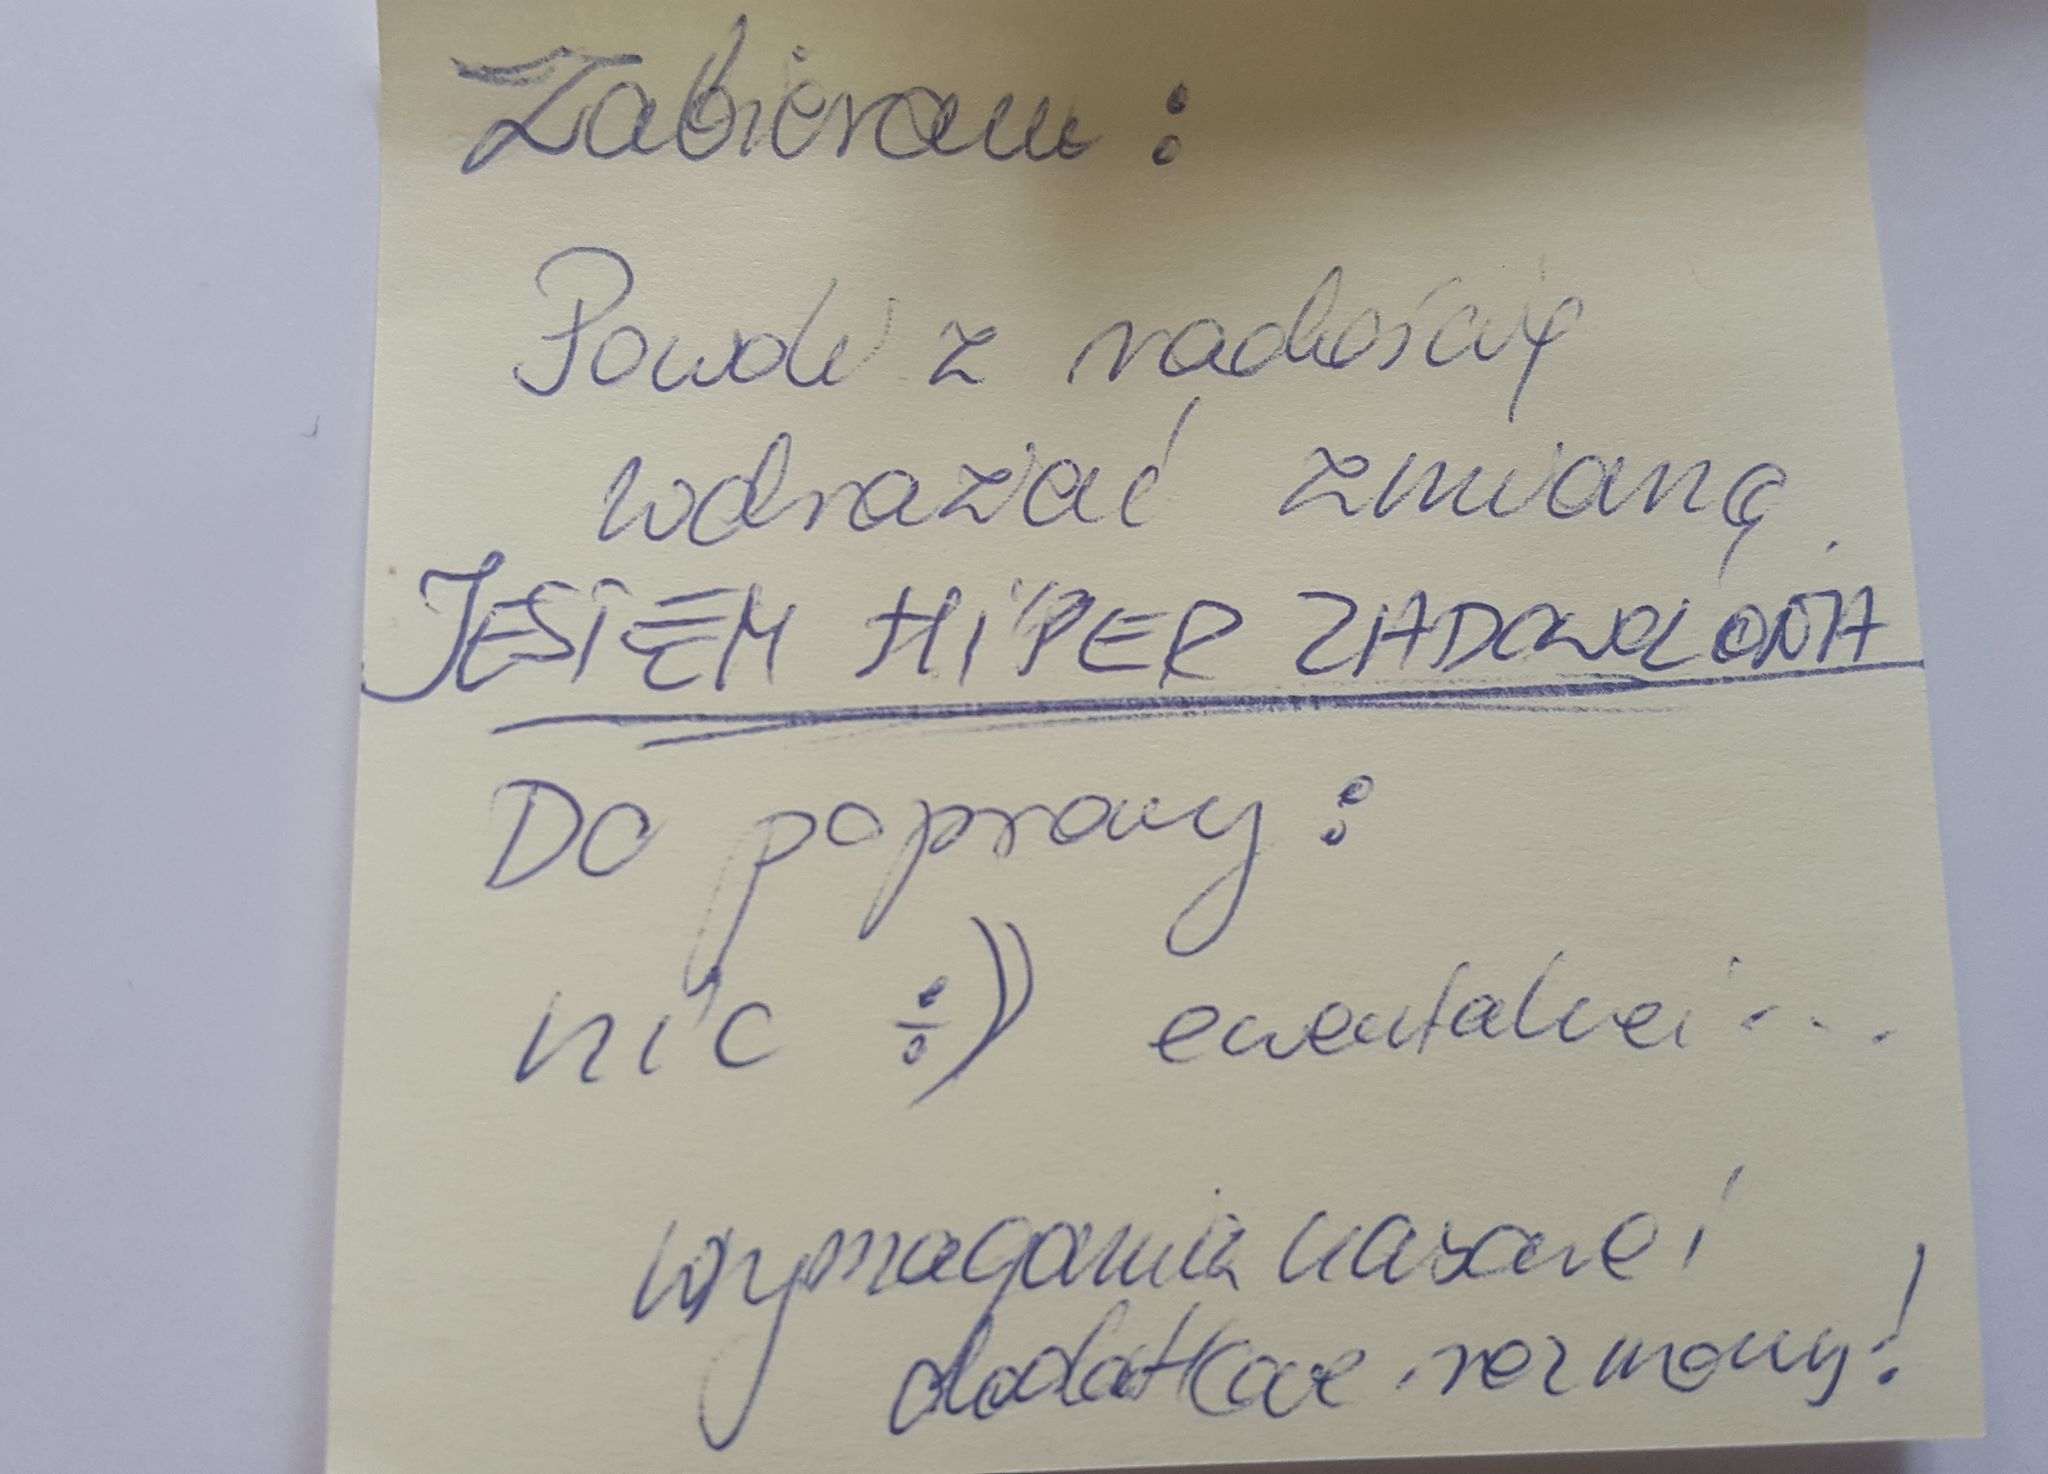 Zabieram:
z radością
wdrażać zmianę
JESTEM HIPER ZADOWOLONA
Do poprawy:
nic :)) ewentalnei...
wymagania
dodatkowe rozmowy!